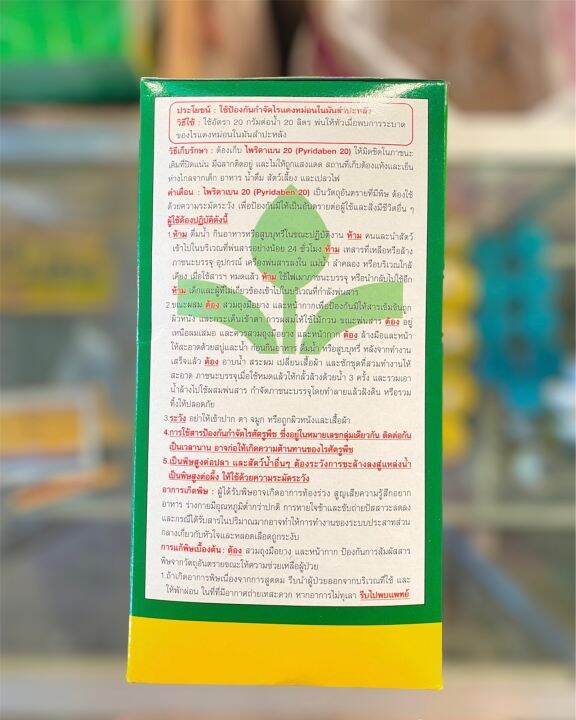 ประโยชน์ : ใช้ป้องกันกำจัดไรแดงหม่อนในมันสำปะหลัง
วิธีใช้ : ใช้อัตรา 20 กรัมต่อน้ำ 20 ลิตร พ่นให้ทั่วเมื่อพบการระบาด
ของไรแดงหม่อนในมันสำปะหลัง
วิธีเก็บรักษา : ต้องเก็บ ไพริดาเบน 20 (Pyridaben 20) ให้มิดชิดในภาชนะ
เดิมที่ปิดแน่น มีฉลากติดอยู่ และไม่ให้ถูกแสงแดด สถานที่เก็บต้องแห้งและเย็น
ห่างไกลจากเด็ก อาหาร น้ำดื่ม สัตว์เลี้ยง และเปลวไฟ
คำเตือน : ไพริดาเบน 20 (Pyridaben 20) เป็นวัตถุอันตรายที่มีพิษ ต้องใช้
ด้วยความระมัดระวัง เพื่อป้องกันมิให้เป็นอันตรายต่อผู้ใช้และสิ่งมีชีวิตอื่น ๆ
ผู้ใช้ต้องปฏิบัติดังนี้
1.ห้าม ดื่มน้ำ กินอาหารหรือสูบบุหรี่ในขณะปฏิบัติงาน ห้าม คนและนำสัตว์
เข้าไปในบริเวณที่พ่นสารอย่างน้อย 24 ชั่วโมง ห้าม เทสารที่เหลือหรือล้าง
ภาชนะบรรจุ อุปกรณ์ เครื่องพ่นสารลงใน แม่น้ำ ลำคลอง หรือบริเวณใกล้
เคียง เมื่อใช้สารฯ หมดแล้ว ห้าม ใช้ไฟเผาภาชนะบรรจุ หรือนำกลับไปใช้อีก
ห้าม เด็กและผู้ที่ไม่เกี่ยวข้องเข้าไปในบริเวณที่กำลังพ่นสาร
2.ขณะผสม ต้อง สวมถุงมือยาง และหน้ากากเพื่อป้องกันมิให้สารเข้มข้นถูก
ผิวหนัง และกระเด็นเข้าตา การผสมให้ใช้ไม้กวน ขณะพ่นสาร ต้อง อยู่
เหนือลมเสมอ และควรสวมถุงมือยาง และหน้ากาก ต้อง ล้างมือและหน้า
ให้สะอาดด้วยสบู่และน้ำ ก่อนกินอาหาร ดื่มน้ำ หรือสูบบุหรี่ หลังจากทำงาน
เสร็จแล้ว ต้อง อาบน้ำ สระผม เปลี่ยนเสื้อผ้า และซักชุดที่สวมทำงานให้
สะอาด ภาชนะบรรจุเมื่อใช้หมดแล้วให้กลั้วล้างด้วยน้ำ 3 ครั้ง และรวมเอา
น้ำล้างไปใช้ผสมพ่นสาร กำจัดภาชนะบรรจุโดยทำลายแล้วฝังดิน หรือรวม
ทิ้งให้ปลอดภัย
3.ระวัง อย่าให้เข้าปาก ตา จมูก หรือถูกผิวหนังและเสื้อผ้า
4.การใช้สารป้องกันกำจัดไรศัตรูพืช ซึ่งอยู่ในหมายเลขกลุ่มเดียวกัน ติดต่อกัน
เป็นเวลานาน อาจก่อให้เกิดความต้านทานของไรศัตรูพืช
5.เป็นพิษสูงต่อปลา และสัตว์น้ำอื่นๆ ต้องระวังการชะล้างลงสู่แหล่งน้ำ
เป็นพิษสูงต่อผึ้ง ให้ใช้ด้วยความระมัดระวัง
อาการเกิดพิษ : ผู้ได้รับพิษอาจเกิดอาการท้องร่วง สูญเสียความรู้สึกอยาก
อาหาร ร่างกายมีอุณหภูมิต่ำกว่าปกติ การหายใจช้าและขับถ่ายปัสสาวะลดลง
และกรณีได้รับสารในปริมาณมากอาจทำให้การทำงานของระบบประสาทส่วน
กลางเกี่ยวกับหัวใจและหลอดเลือดถูกระงับ
การแก้พิษเบื้องต้น: ต้อง สวมถุงมือยาง และหน้ากาก ป้องกันการสัมผัสสาร
พิษจากวัตถุอันตรายขณะให้ความช่วยเหลือผู้ป่วย
1.ถ้าเกิดอาการพิษเนื่องจากการสูดดม รีบนำผู้ป่วยออกจากบริเวณที่ใช้ และ
ให้พักผ่อน ในที่ที่มีอากาศถ่ายเทสะดวก หากอาการไม่ทุเลา รีบไปพบแพทย์